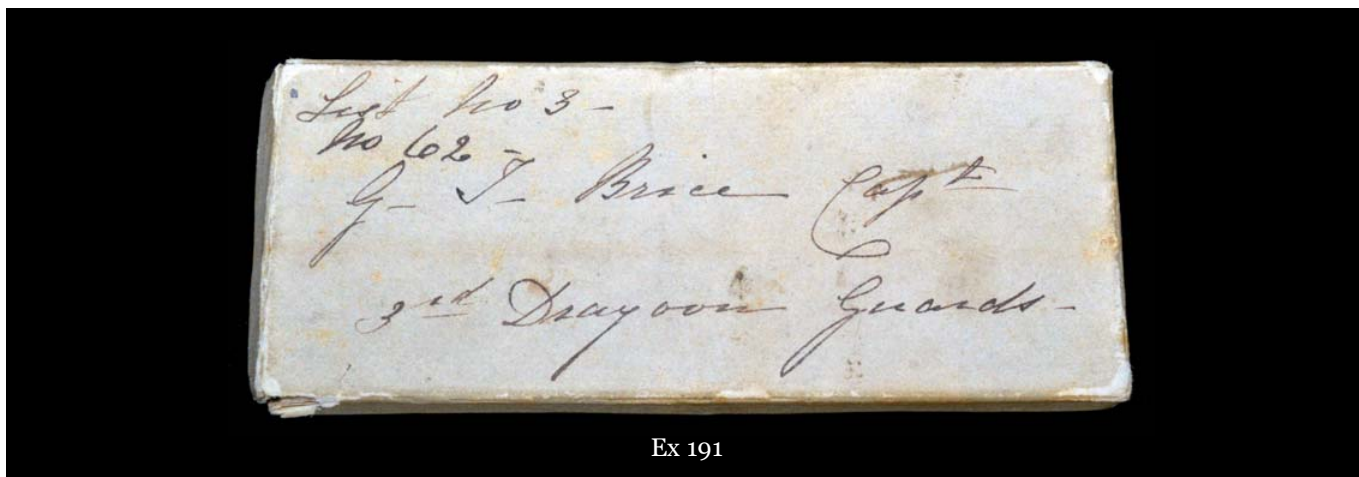 List No 3 -
No 62 -
G - T - Brice Capth
3rd Dragoon Guards -
Ex 191